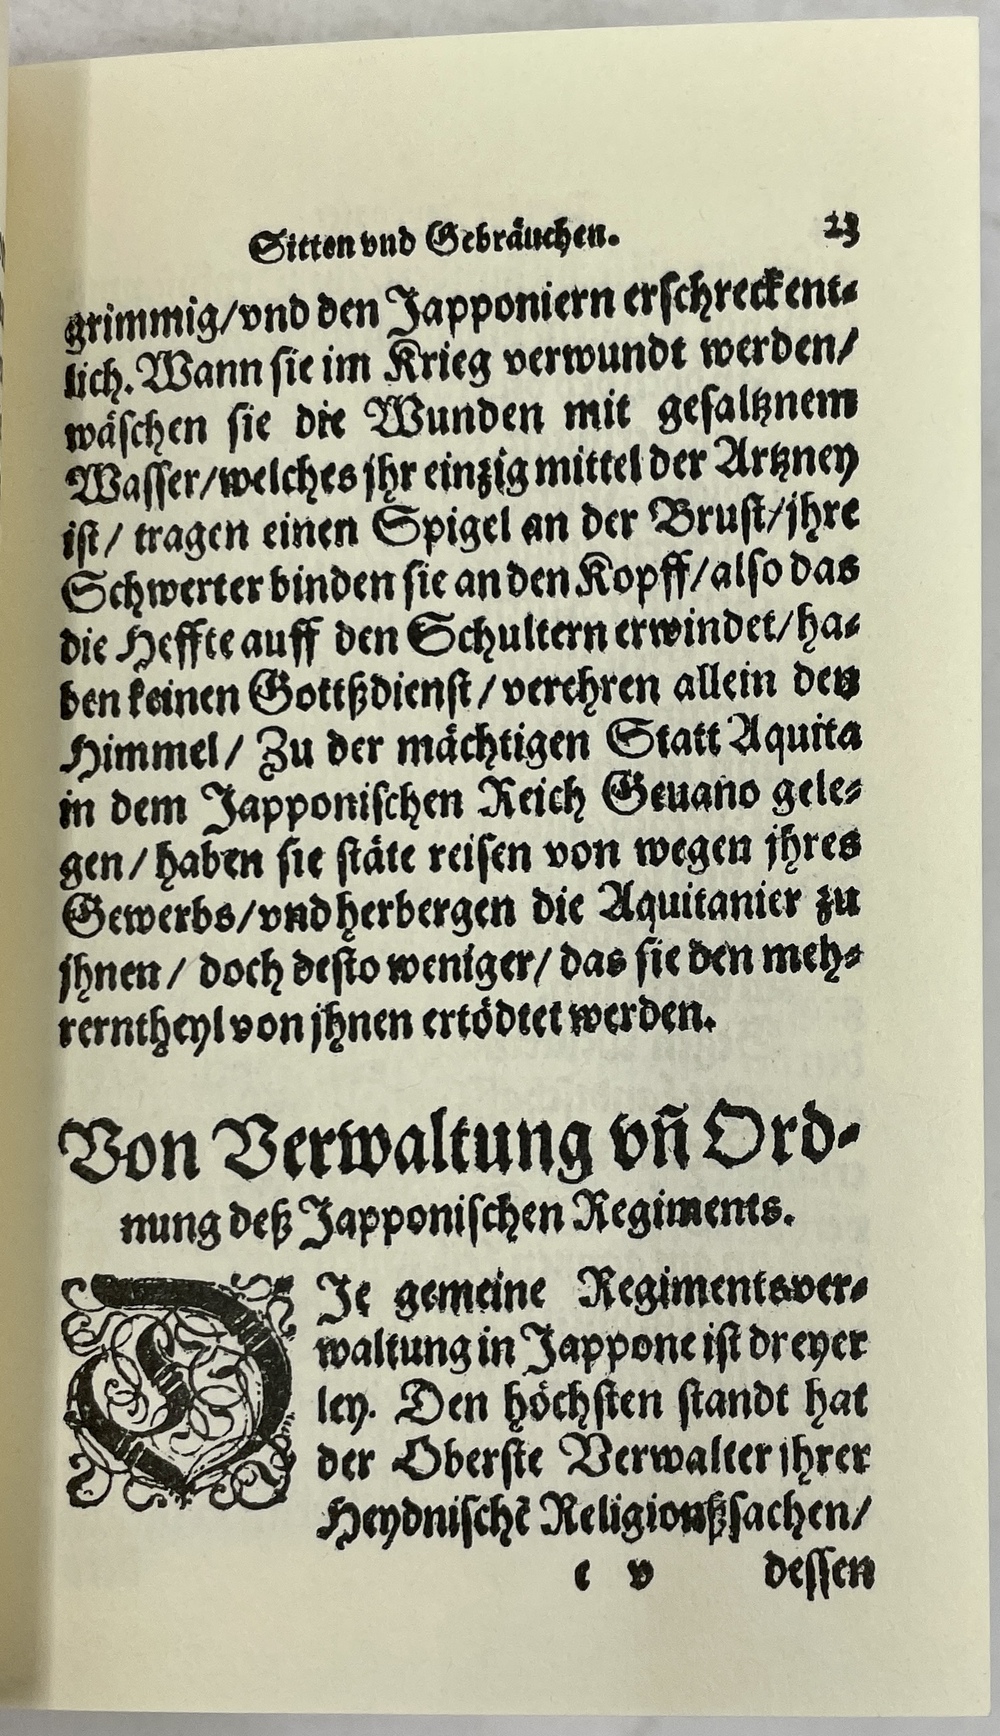 Sitten vnd Gebräuchen. 23
grimmig/vnd den Japponiern erschreckent-
lich. Wann sie im Krieg verwundt werden/
wäschen sie die Wunden mit gesaltznem
Wasser/welches jhr einzig mittel der Artzney
ist/ tragen einen Spigel an der Brust/jhre
Schwerter binden sie an den Kopff/also das
die Heffte auff den Schultern erwindet/ha-
ben keinen Gottßdienst/verehren allein den
Himmel/ Zu der mächtigen Statt Aquita
in dem Japponischen Reich Geuano gele-
gen/haben sie stäte reisen von wegen jhres
Gewerbs/vnd herbergen die Aquitanier zu
jhnen/ doch desto weniger/ das sie den meh-
rerntheyl von jhnen ertödtet werden.
Von Verwaltung vñ Ord-
nung deß Japponischen Regiments.
DJe gemeine Regimentsver-
waltung in Jappone ist dreyer
ley. Den höchsten standt hat
der Oberste Verwalter jhrer
Heydnischē Religionßsachen/
e v dessen